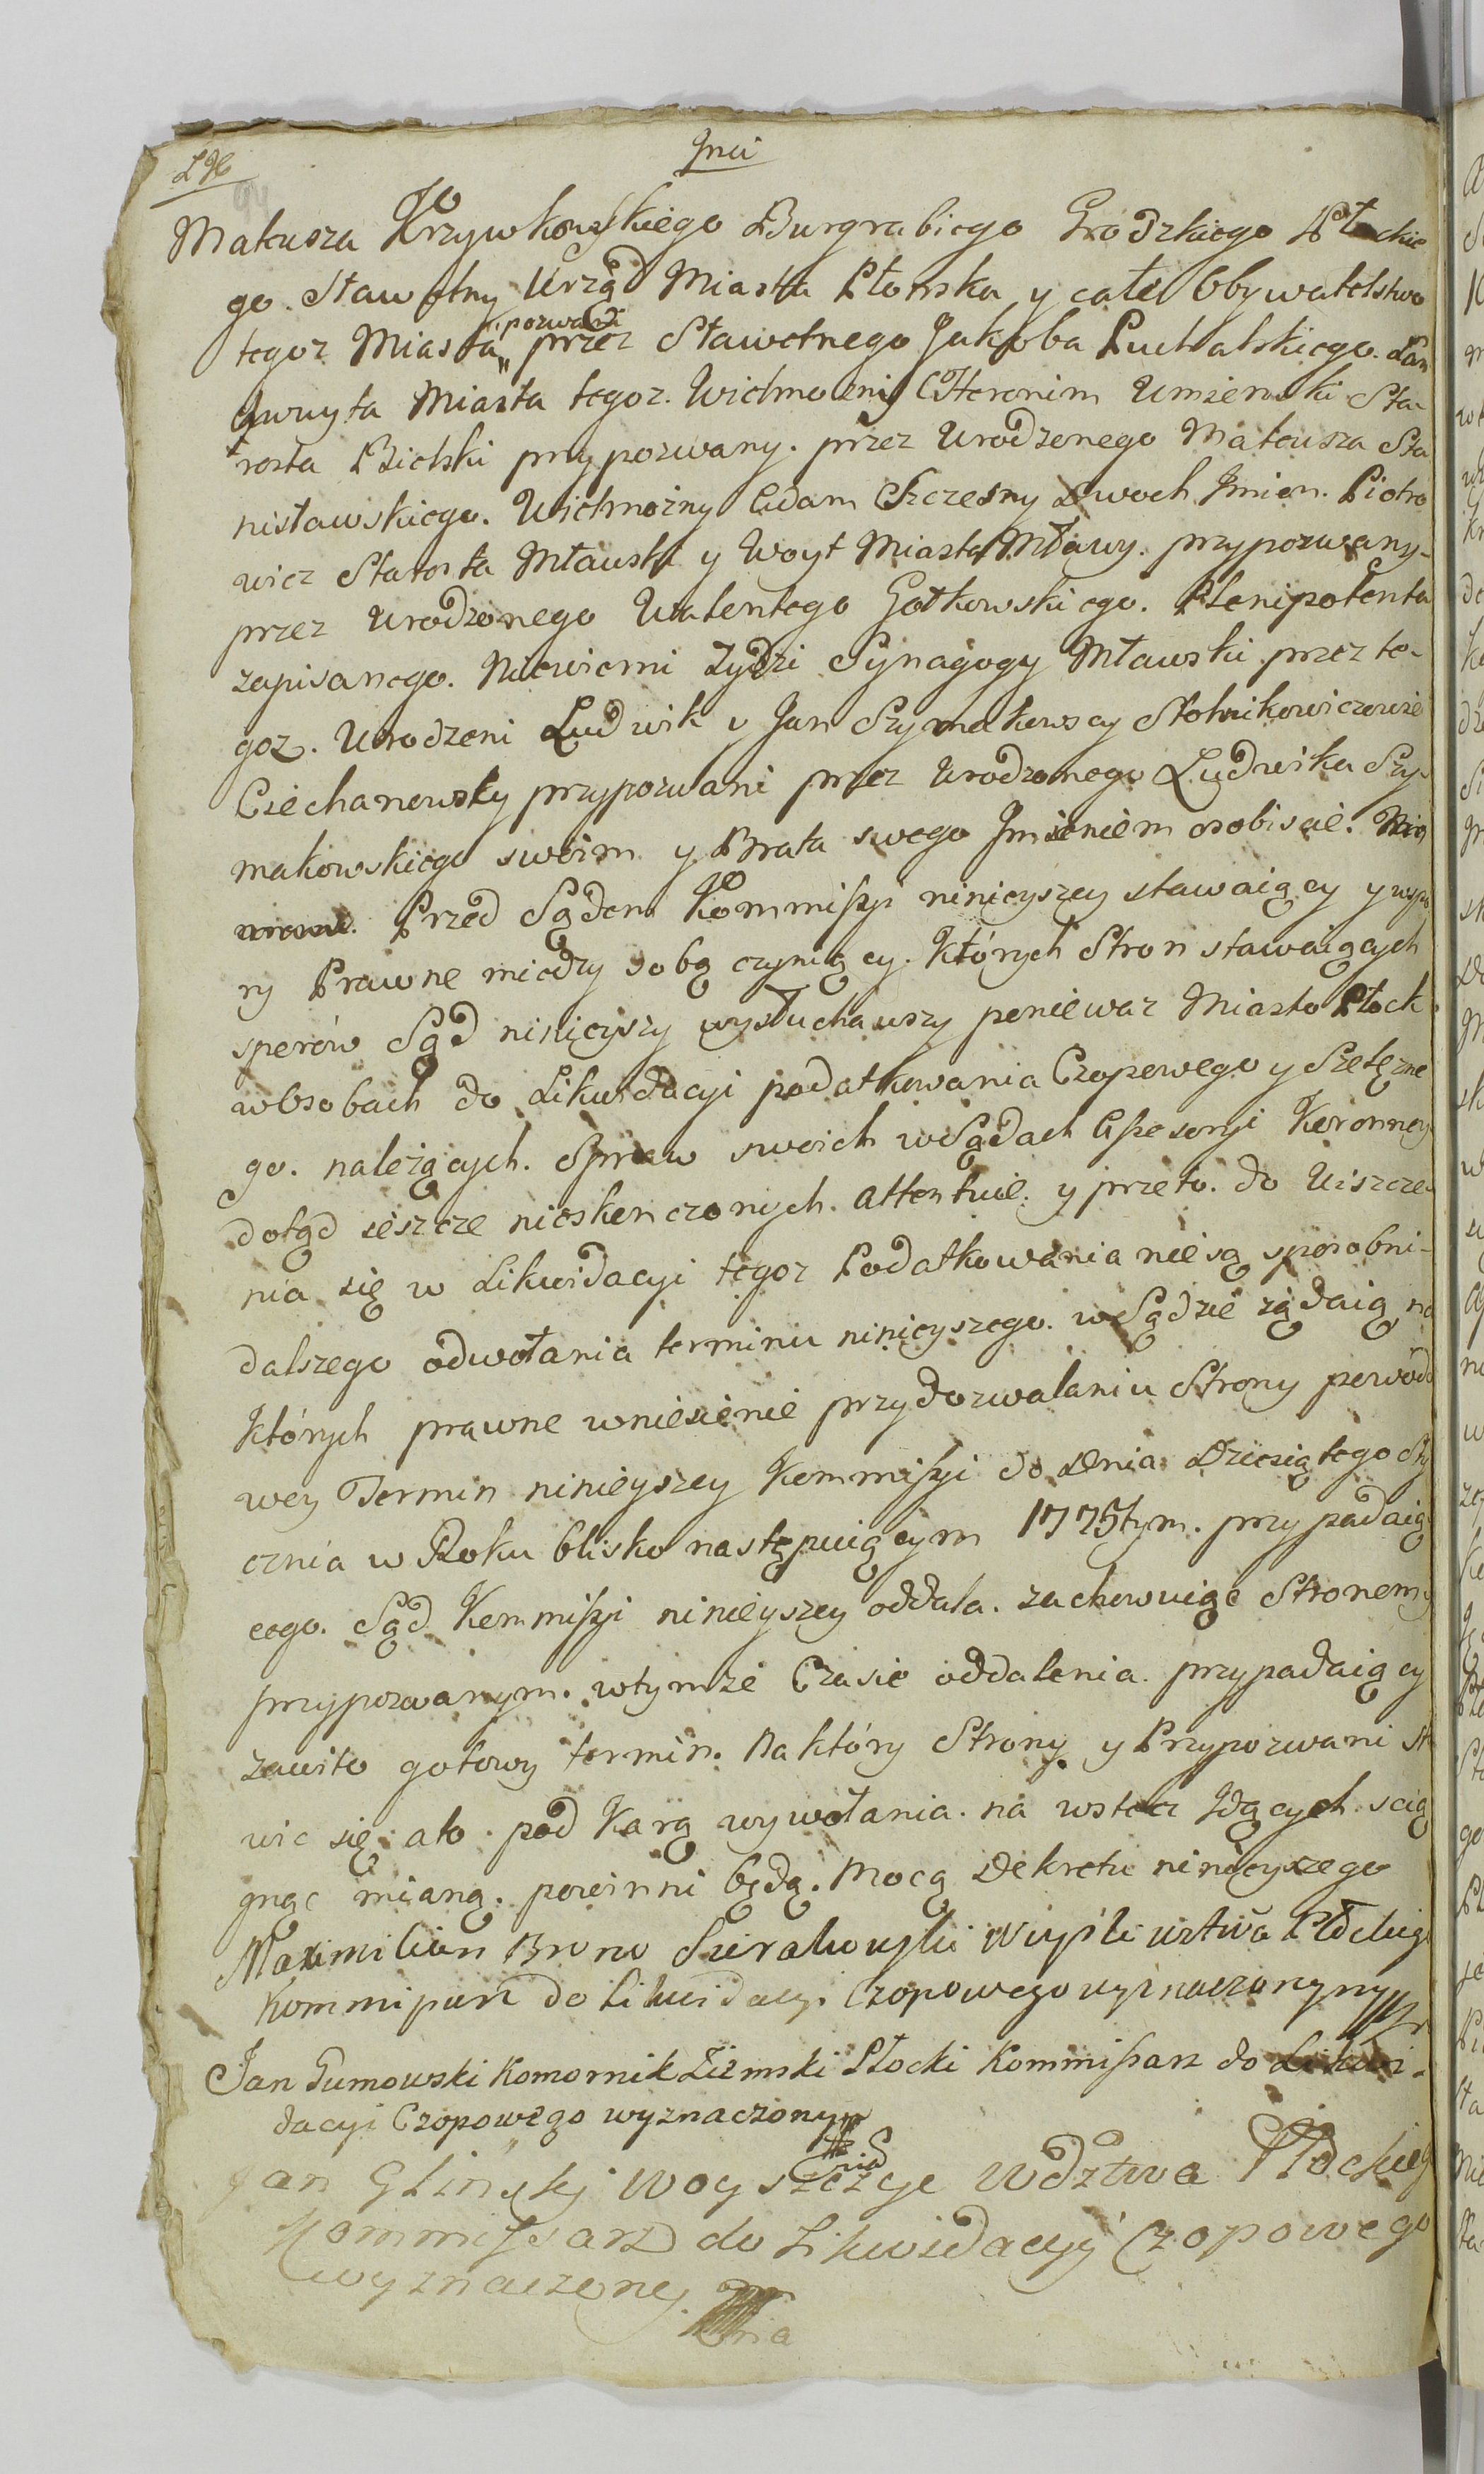 Makusza Krzywkowskiego Burgrabiego Grodzkiego Płockie
go. Sławetny Urząd Miasta Płońska y całe Obywatelstwo
pozwani
tegoż Miasta przez Sławetnego Jakóba Puchalskiego. Lan
dwuyta Miasta tegoż. Wielmożny Hieronim Umieński Sta
rosta Bielski przypozwany. przez Urodzonego Mateusza Sta
nisławskiego. Wielmożny Adam Szczesny Dwoch Jmion. Piotro
wicz Starosta Mławski y Woyt Miasta Mławy. przypozwany
przez Urodzonego Walentego Gotkowskiego. Plenipotenta
zapisanego. Niewierni Zydzi Synagogy Mławski przez te-
goż. Urodzeni Ludwik y Jan Szymakowscy Stolnikowiczowie
Ciechanowscy przypozwani przez Urodzonego Ludwika Szy-
makowskiego swoim y Brata swego Jmieniem osobiscie.
Przed Sądem Kommissyi ninieyszey stawaiący y wspo
ry Prawne miedzy sobą czyniący. Których Stron stawaiących
sporów Sąd ninieyszy wysłuchawszy poniewaz Miasto Płock
w Osobach do Likwidacyi podatkowania Czopowego y Szelężne
go. należących. Spraw swoich w Sądach Assesoryi Koronney
dotąd ieszcze nieskończonych. attentuie. y przeto. do Uiszcze
nia się w Likwidacyi tegoz Podatkowania nie są sposobni-
dalszego odwołania terminu ninieyszego. w Sądzie żądaią na
Których prawne wniesienie przy dozwalaniu Strony powodo
wey Termin ninieyszey Kommissyi do Dnia Dziesiątego Sty
cznia w Roku blisko następuiącym 1775tym. przypadaią
cego. Sąd Kommissyi ninieyszey oddala. zachowuiąc Stronom
przypozwanym. w tymże Czasie oddalenia. przypadaiący
zawito gotowy termin. Na który Strony y Przypozwani sta
wic się. ato. pod Karą wywołania. na wstecz Jdących. scią
gnąc mianą. powinni będą. Mocą Dekretu ninieyszego
Maximilian Bruno Sierakowski Woysk: wztwa Płockiego
Kommissarz do Likwidacyi Czopowego wyznaczony mp
Jan Gumowski Komornik Ziemski Płocki Kommissarz do Likwi-
dacyi Czopowego wyznaczony mp
Jan Glinskj Woyszczyc Wdztwa Płockieg
Kommissarz do Likwidacyi Czopowego
wyznaczony.